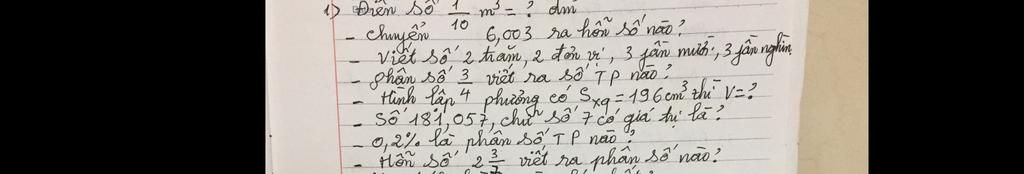 1) Điền số 1/10 m³ = ? dm
- chuyển 6,003 ra hỗn số nào?
- Viết số 2 trăm, 2 đơn vị, 3 phần mười, 3 phần nghìn
- phân số 3/4 viết ra số TP nào?
- Hình lập phương có Sxq = 196cm³ thì V = ?
- Số 181,057, chữ số 7 có giá trị là?
- 0,2% là phân số TP nào?
- Hỗn số 2 3/7 viết ra phân số nào?